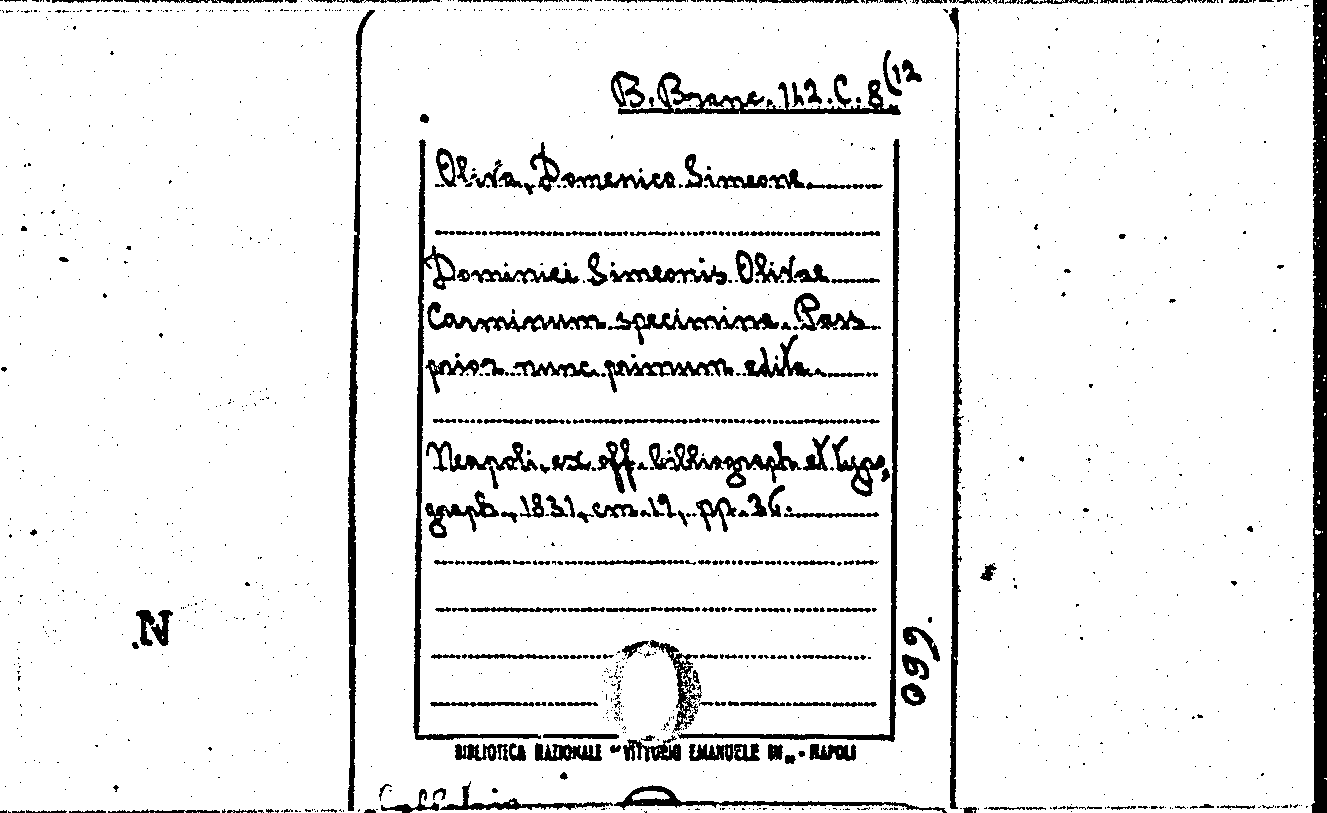 B. Branc. 142. C. 8(12
Oliva, Domenico Simeone.
Dominici Simeonis Olivae
Carminum specimina. Pars
prior nunc primum edita.
Neapoli, ex off. bibliograph. et typo,
graph., 1831, cm. 19, pp. 36.
099.
N
BIBLIOTECA NAZIONALE "VITTORIO EMANUELE III" - NAPOLI